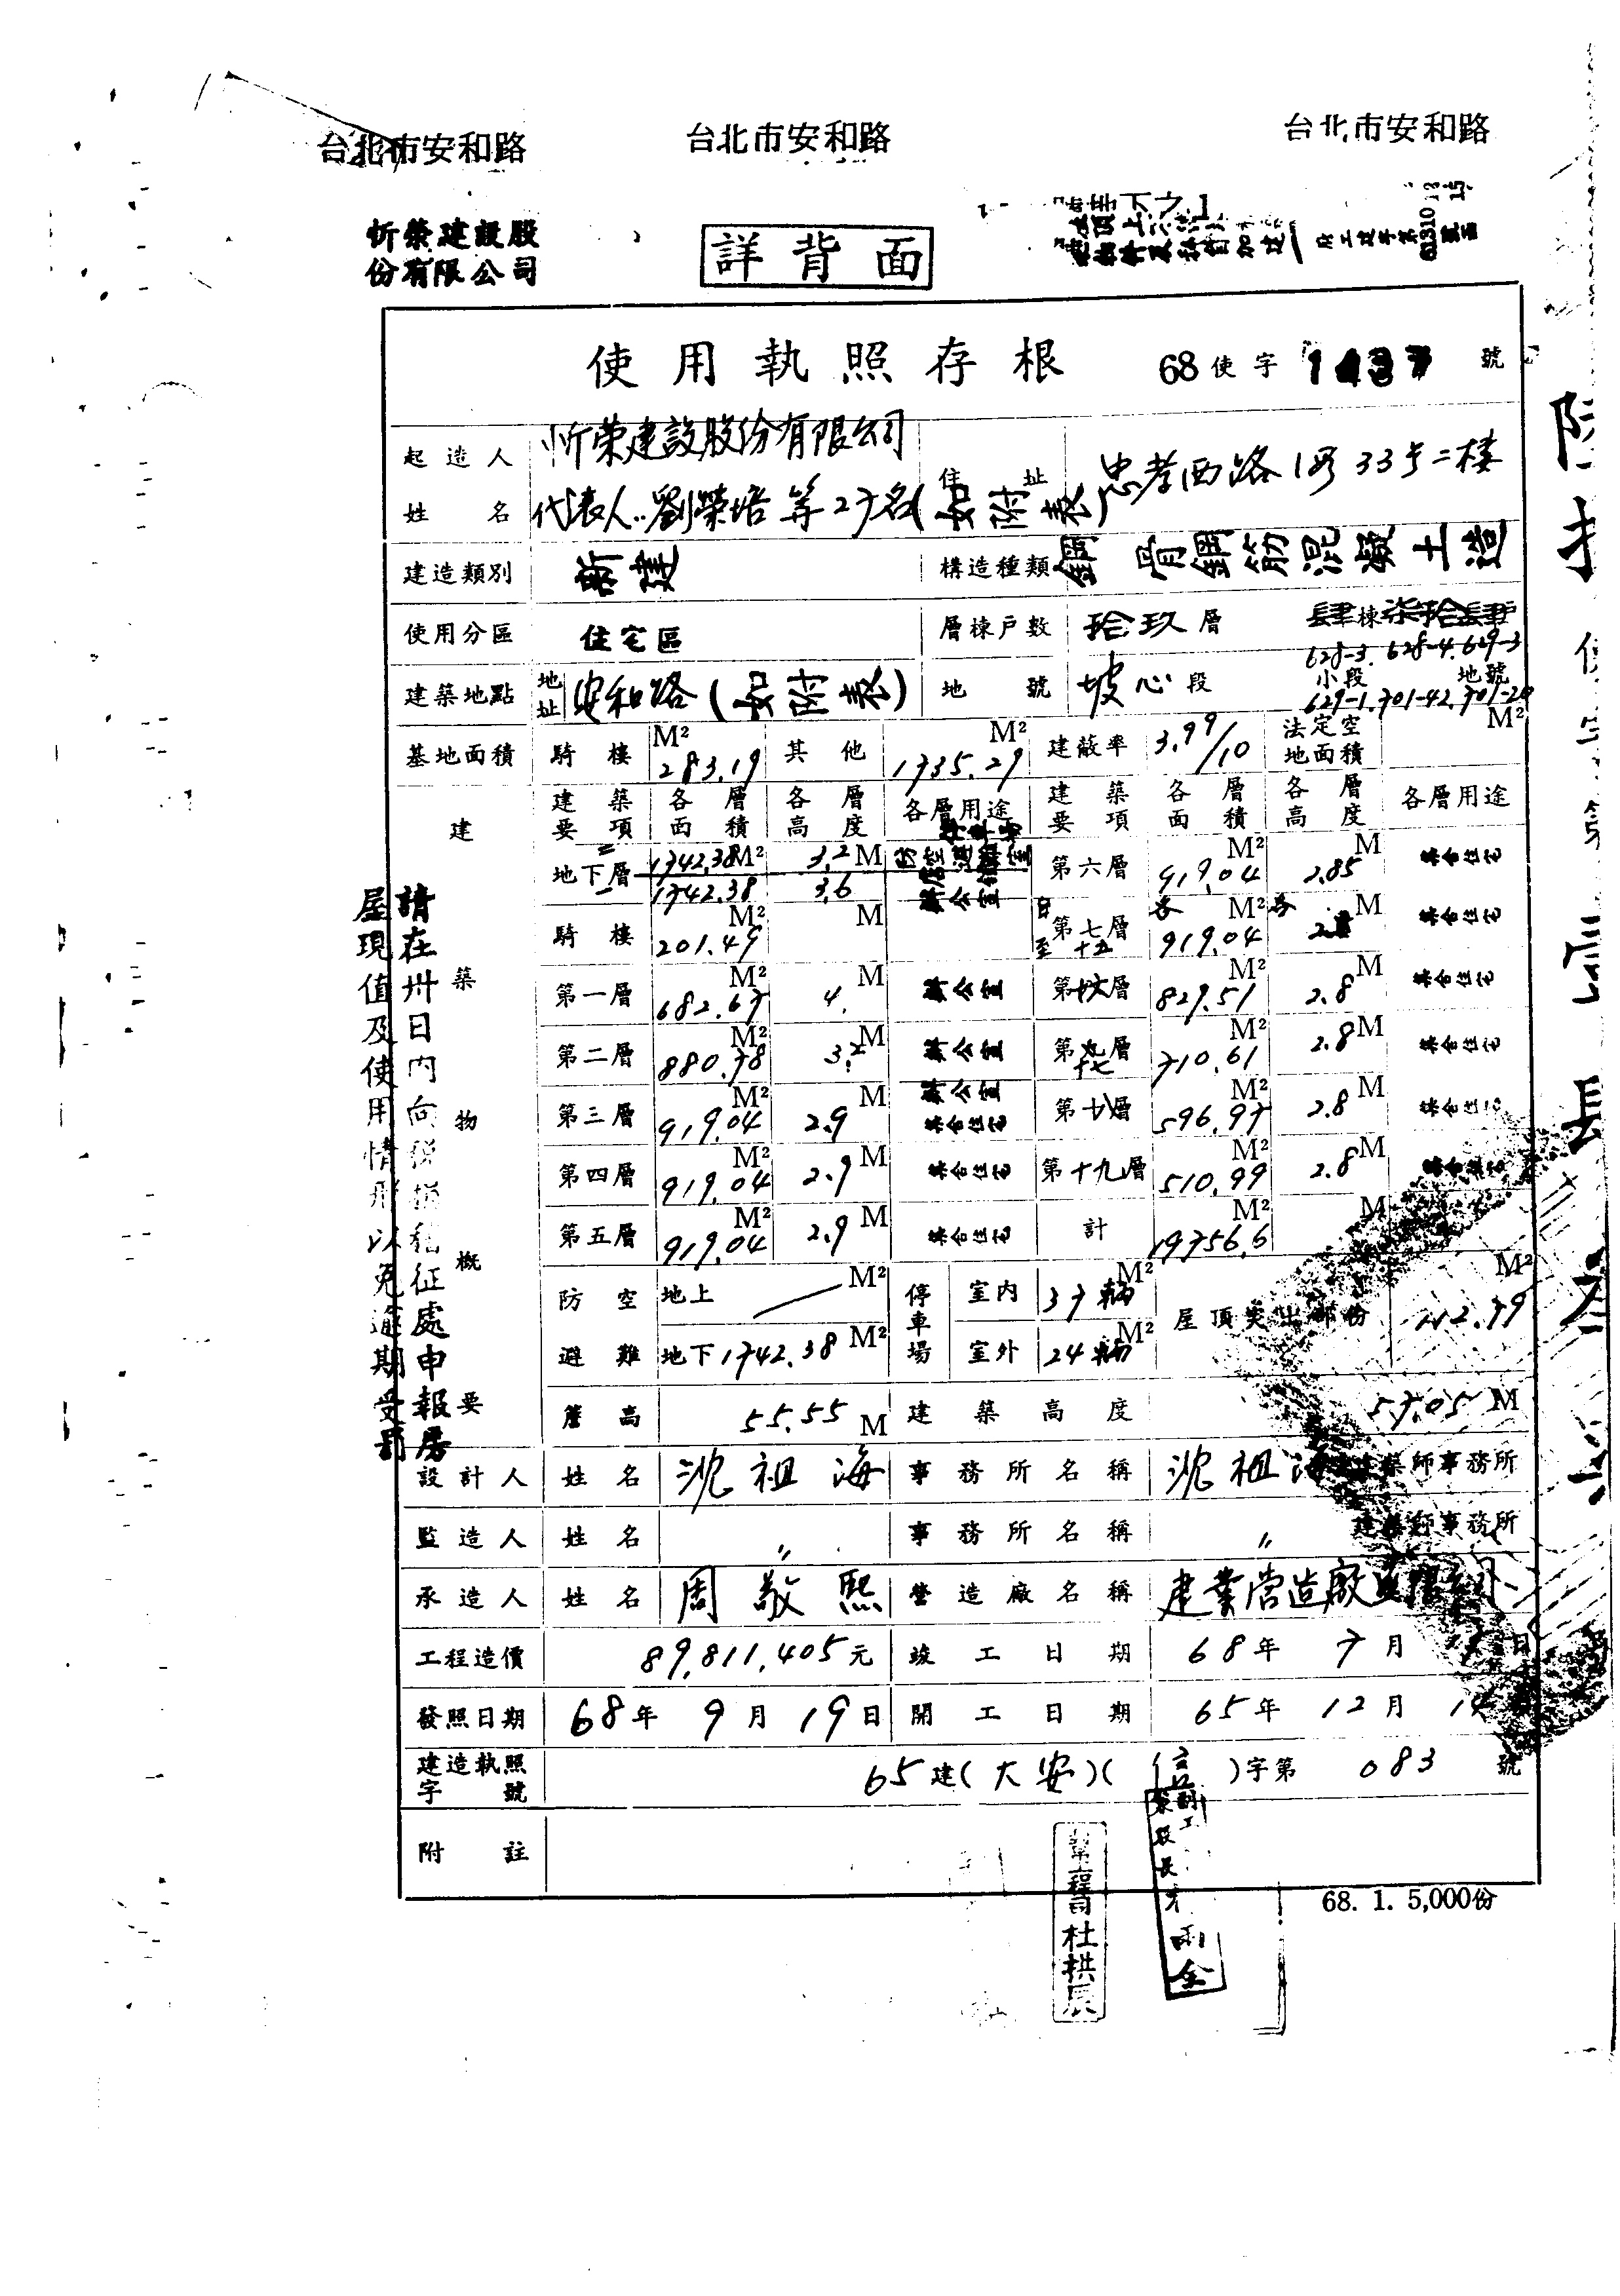 台北市安和路 台北市安和路 台北市安和路
忻榮建設股
份有限公司
詳背面
使用執照存根 68使字 1437 號
起造人姓名 忻榮建設股份有限公司
代表人:劉榮培等27名(如附表)
住址 忠孝西路1段33号二樓
建造類別 新建 構造種類 鋼骨鋼筋混凝土造
使用分區 住宅區 層棟戶數 拾玖層 肆棟柒拾肆戶
建築地點 地址 安和路(如附表) 地號 坡心段 小段 地號
628-3. 628-4. 629-3
629-1. 701-42. 701-20
基地面積 騎樓 M² 283.19 其他 M² 1735.29 建蔽率 3.99/10 法定空地面積 M²
建築物概要
建築要項 各層面積 各層高度 各層用途 建築要項 各層面積 各層高度 各層用途
地下層 二 1742.38 M² 3.2 M
一 1742.38 3.6 辦公室
第六層 919.04 M² 2.85 M 集合住宅
騎樓 201.49 M² M
自第七層至十五 各 919.04 M² 各 M 集合住宅
第一層 682.67 M² 4. M 辦公室
第十六層 829.51 M² 2.8 M 集合住宅
第二層 880.78 M² 3.2 M 辦公室
第十七層 710.61 M² 2.8 M 集合住宅
第三層 919.04 M² 2.9 M 辦公室 集合住宅
第十八層 596.97 M² 2.8 M 集合住宅
第四層 919.04 M² 2.9 M 集合住宅
第十九層 510.99 M² 2.8 M 集合住宅
第五層 919.04 M² 2.9 M 集合住宅
計 19756.6 M² M
防空避難 地上 M² 地下 1742.38 M²
停車場 室內 37輛 M² 室外 24輛 M²
屋頂突出部份 212.79 M²
簷高 55.55 M 建築高度 57.05 M
設計人 姓名 沈祖海 事務所名稱 沈祖海建築師事務所
監造人 姓名 〃 事務所名稱 〃 建築師事務所
承造人 姓名 周敬熙 營造廠名稱 建業營造廠有限公司
工程造價 89,811,405元 竣工日期 68年 7月 日
發照日期 68年 9月 19日 開工日期 65年 12月 14
建造執照字號 65建(大安)(信)字第 083 號
附註
68. 1. 5,000份
請在卅日內向稅捐稽征處申報房
屋現值及使用情形以免逾期受罰
工程司杜拱辰